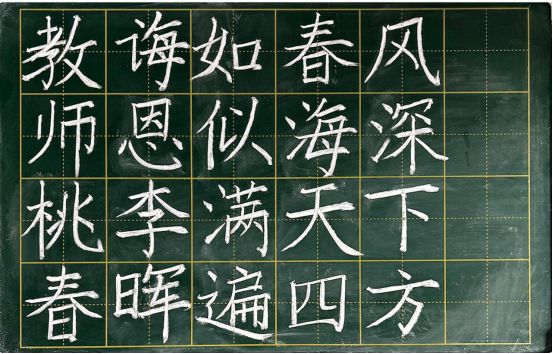 教诲如春风
师恩似海深
桃李满天下
春晖遍四方